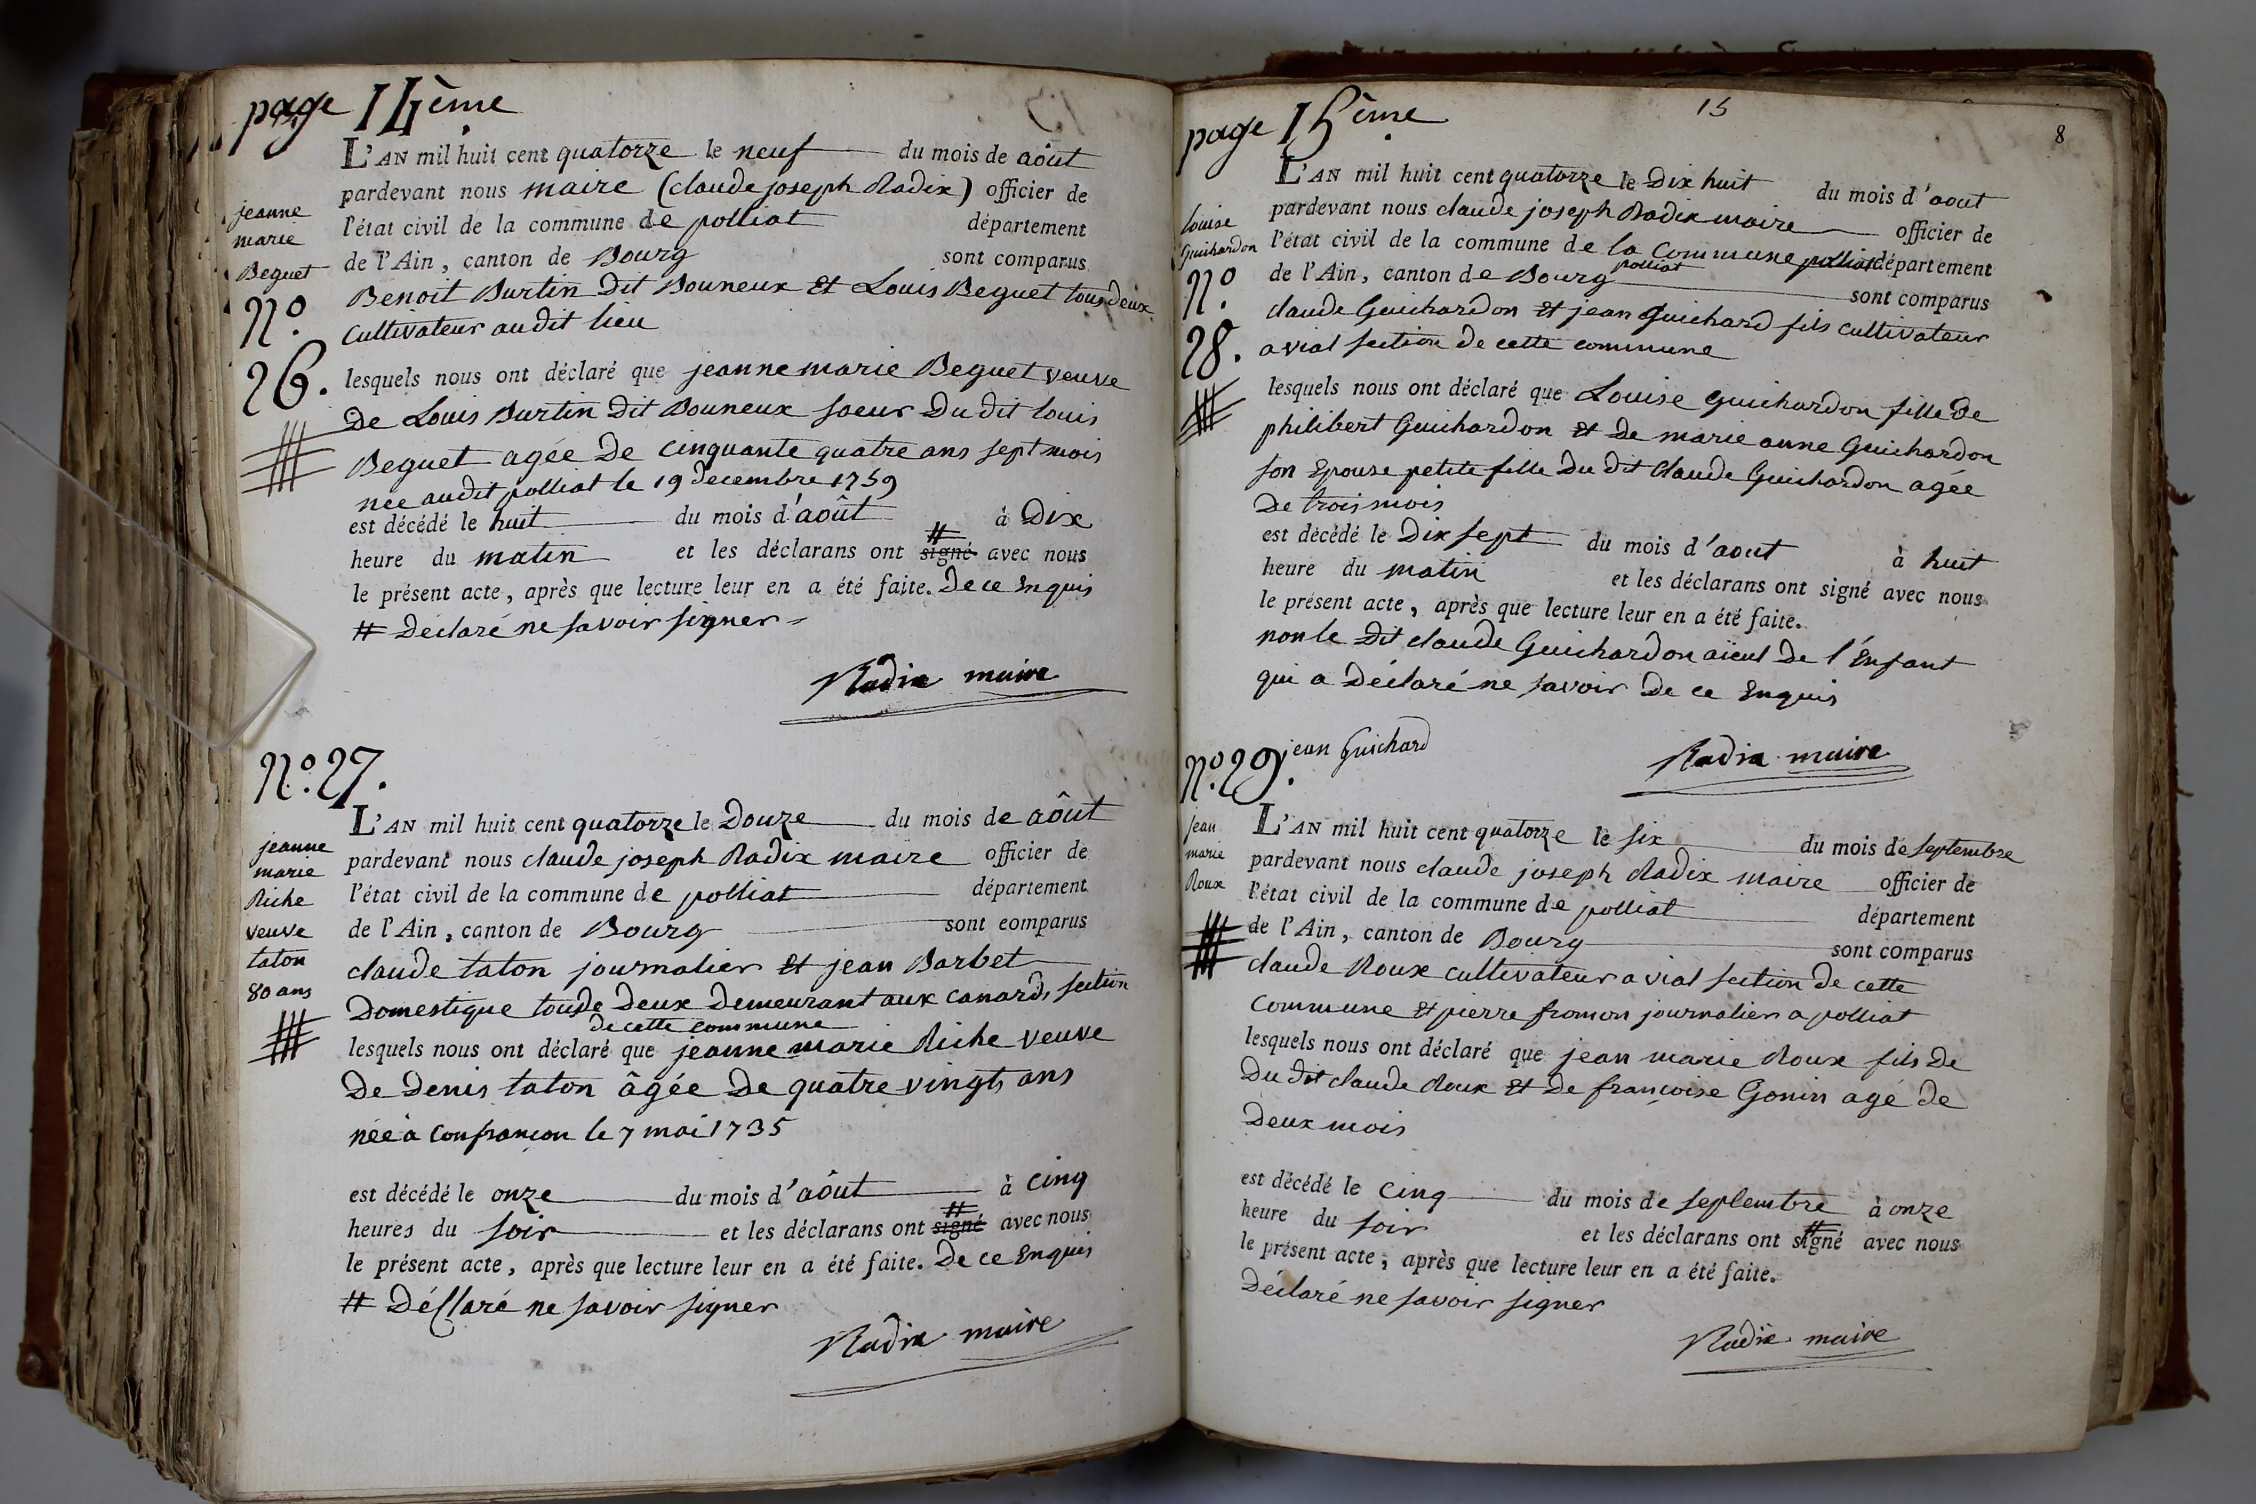 page 14ème
L'AN mil huit cent quatorze le neuf du mois de août
pardevant nous maire (claude joseph Radix) officier de
l'état civil de la commune de polliat département
de l'Ain, canton de Bourg sont comparus
Benoit Burtin Dit Bouneux Et Louis Beguet tous deux
cultivateur audit lieu
jeanne
marie
Beguet
N.º
26.
lesquels nous ont déclaré que jeanne marie Beguet veuve
De Louis Burtin Dit Bouneux soeur Du dit louis
Beguet agée De cinquante quatre ans sept mois
née audit polliat le 19 Decembre 1759
est décédé le huit du mois d'août à Dix
heure du matin et les déclarans ont # signé avec nous
le présent acte, après que lecture leur en a été faite. De ce Enquis
# Déclaré ne savoir signer
Radix maire
N.º 27.
L'AN mil huit cent quatorze le Douze du mois de août
pardevant nous claude joseph Radix maire officier de
l'état civil de la commune de polliat département
de l'Ain, canton de Bourg sont comparus
claude taton journalier Et jean Barbet
Domestique tous De Deux Demeurant aux canards section
de cette commune
jeanne
marie
Riche
veuve
taton
80 ans
lesquels nous ont déclaré que jeanne marie Riche veuve
De Denis taton âgée De quatre vingts ans
née à confrançon le 7 mai 1735
est décédé le onze du mois d'août à cinq
heures du soir et les déclarans ont # signé avec nous
le présent acte, après que lecture leur en a été faite. De ce Enquis
# Déclaré ne savoir signer
Radix maire
page 15ème
15
8
L'AN mil huit cent quatorze le Dix huit du mois d'aout
pardevant nous claude joseph Radix maire officier de
l'état civil de la commune de la commune polliat département
polliat
de l'Ain, canton de Bourg sont comparus
claude Guichardon Et jean Guichard fils cultivateur
a vial section De cette commune
louise
Guichardon
N.º
28.
lesquels nous ont déclaré que Louise Guichardon fille De
philibert Guichardon Et De marie anne Guichardon
son Epouse petite fille Du dit claude Guichardon agée
De trois mois
est décédé le Dix sept du mois d'aout à huit
heure du matin et les déclarans ont signé avec nous
le présent acte, après que lecture leur en a été faite.
non le Dit claude Guichardon aïeul De l'Enfant
qui a Déclaré ne savoir De ce Enquis
jean Guichard
Radix maire
N.º 29.
L'AN mil huit cent quatorze le six du mois de septembre
pardevant nous claude joseph Radix maire officier de
l'état civil de la commune de polliat département
de l'Ain, canton de Bourg sont comparus
claude Roux cultivateur a vial section De cette
commune Et pierre fromon journalier a polliat
jean
marie
Roux
lesquels nous ont déclaré que jean marie Roux fils De
Du dit claude Roux Et De françoise Gonin agé De
Deux mois
est décédé le cinq du mois de septembre à onze
heure du soir et les déclarans ont # signé avec nous
le présent acte, après que lecture leur en a été faite.
Déclaré ne savoir signer
Radix maire